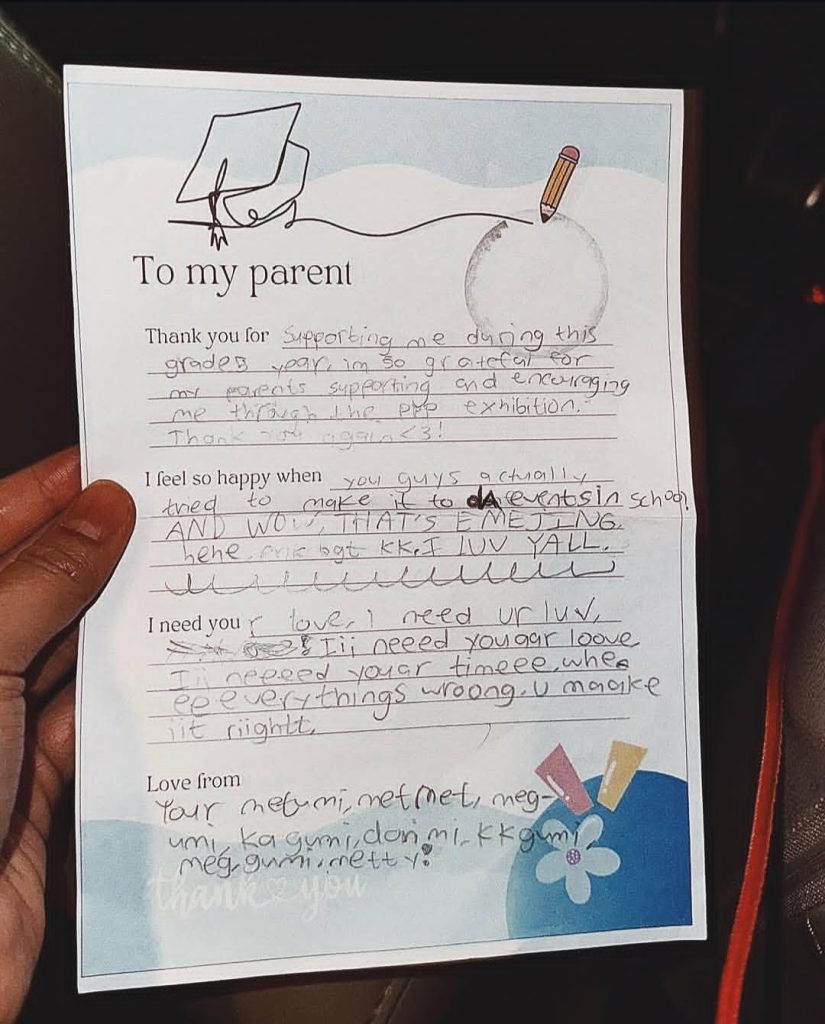 To my parent
Thank you for supporting me during this
grade5 year, im so grateful for
my parents supporting and encouraging
me through the PYP exhibition.
Thank you again <3!
I feel so happy when you guys actually
tried to make it to da events in school.
AND WOW, THAT'S EMEJING.
hehe bgt KK. I LUV YALL.
I need your love, I need ur luv,
Iii neeed youaar loove
Iii neeeed youar timeee, whe
eeeverythings wroong. u maaake
iit riightt.
Love from
Your metumi, metmet, meg-
umi, ka gumi, don mi, kkgumi,
meg, gumi, metty!
thank you